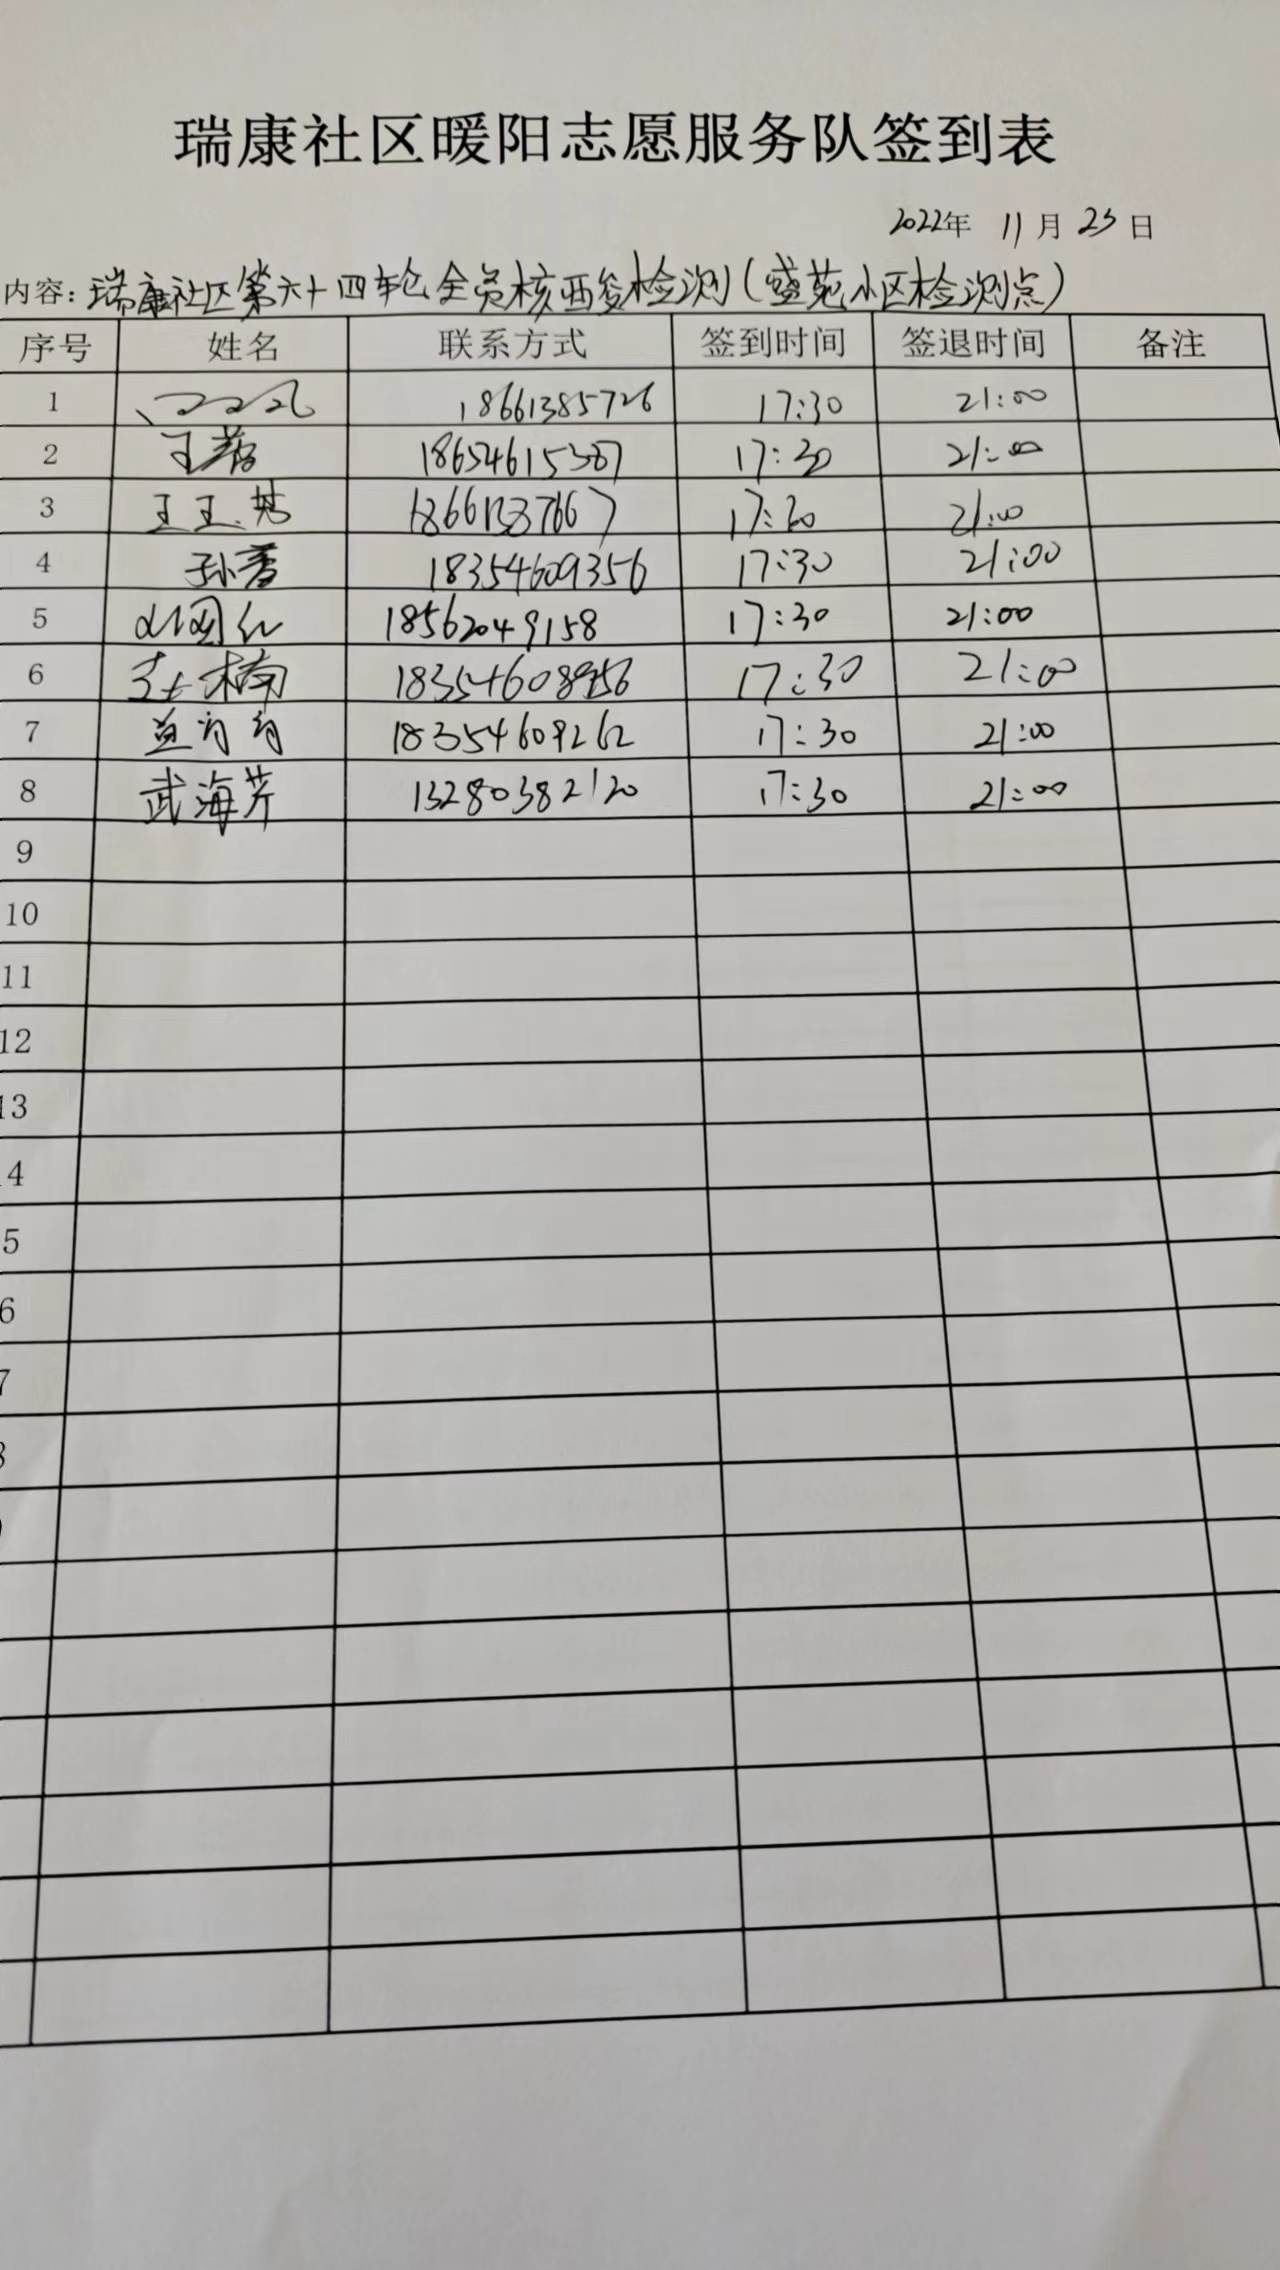 瑞康社区暖阳志愿服务队签到表
2022年 11月 23日
内容：瑞康社区第六十四轮全员核酸检测（盛苑小区检测点）
序号 姓名 联系方式 签到时间 签退时间 备注
1 18661385726 17:30 21:00
2 王蓉 18654615387 17:30 21:00
3 17:30 21:00
4 孙蕾 18354609356 17:30 21:00
5 18562049158 17:30 21:00
6 楠 17:30 21:00
7 18354609262 17:30 21:00
8 武海芹 13280382120 17:30 21:00
9
10
11
12
13
4
5
6
7